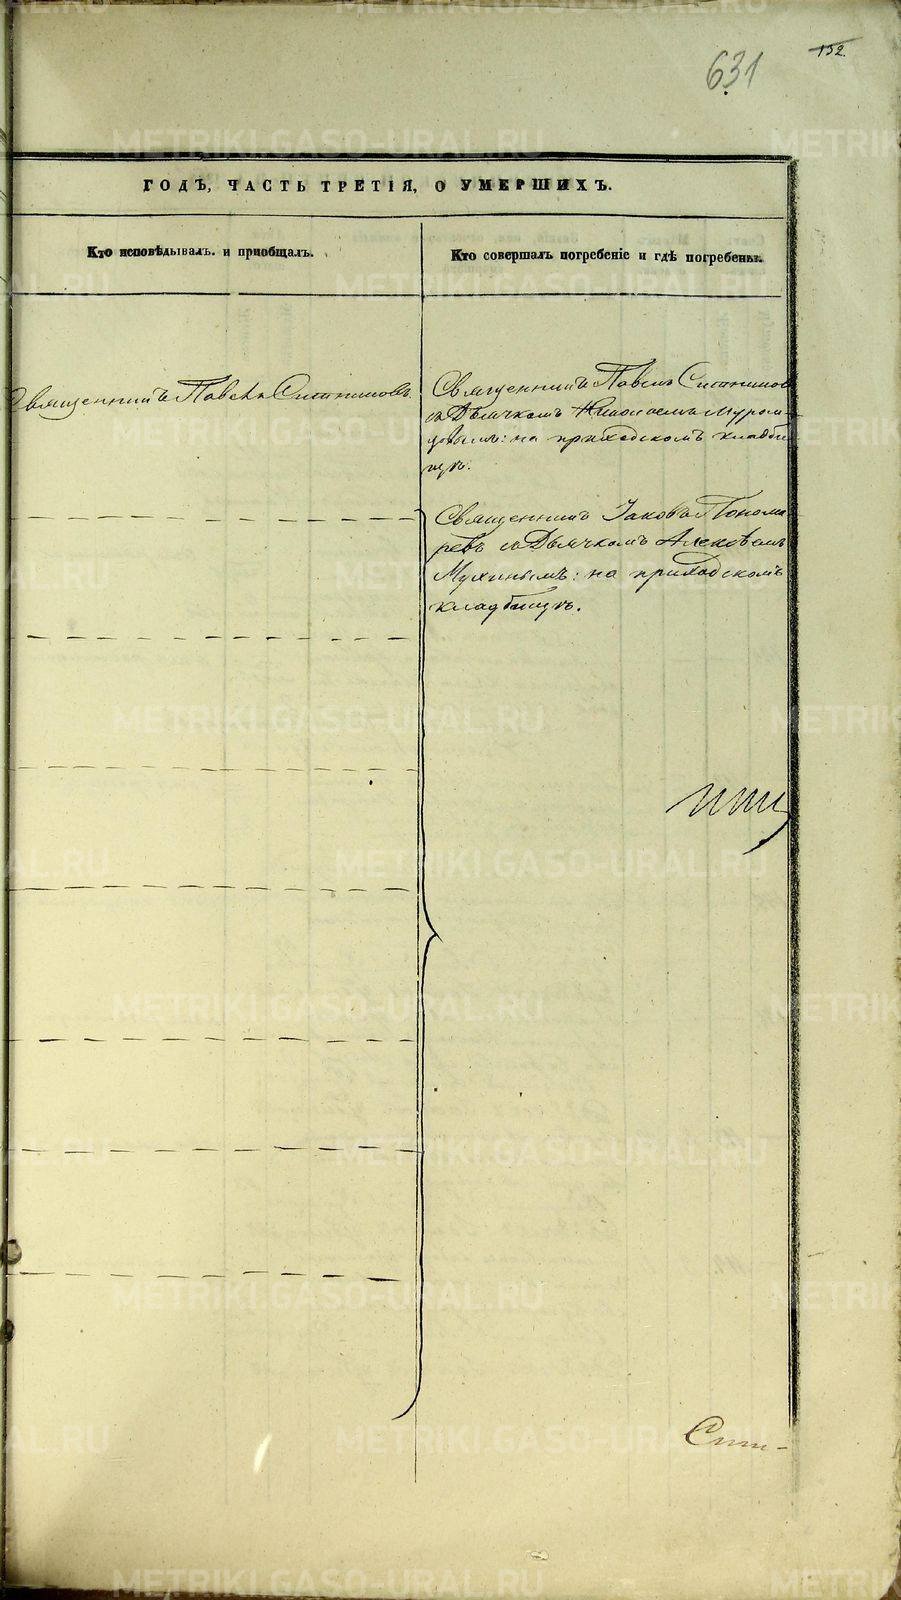 152.
631
ГОДЪ, ЧАСТЬ ТРЕТІЯ, О УМЕРШИХЪ.
Кто исповѣдывалъ и пріобщалъ.
Кто совершалъ погребеніе и гдѣ погребены.
Священникъ Павелъ
Священникъ Павелъ
съ Дьячкомъ Николаемъ Муром-
цовымъ: на приходскомъ кладби
щѣ.
Священникъ Іаковъ Понома-
ревъ съ Дьячкомъ Алексѣемъ
Мухинымъ: на приходскомъ
кладбищѣ.
METRIKI.GASO-URAL.RU